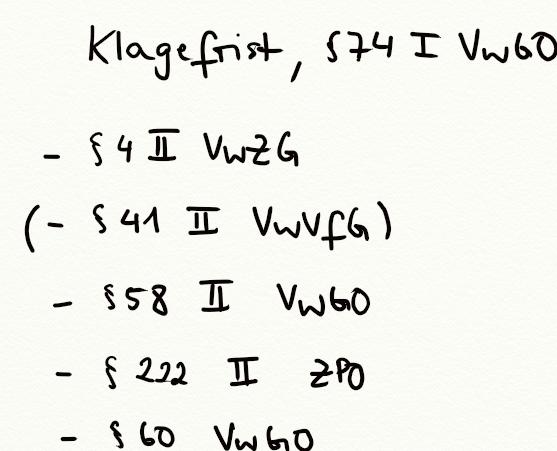 Klagefrist, §74 I VwGO
- § 4 II VwZG
(- § 41 II VwVfG)
- §58 II VwGO
- § 222 II ZPO
- § 60 VwGO